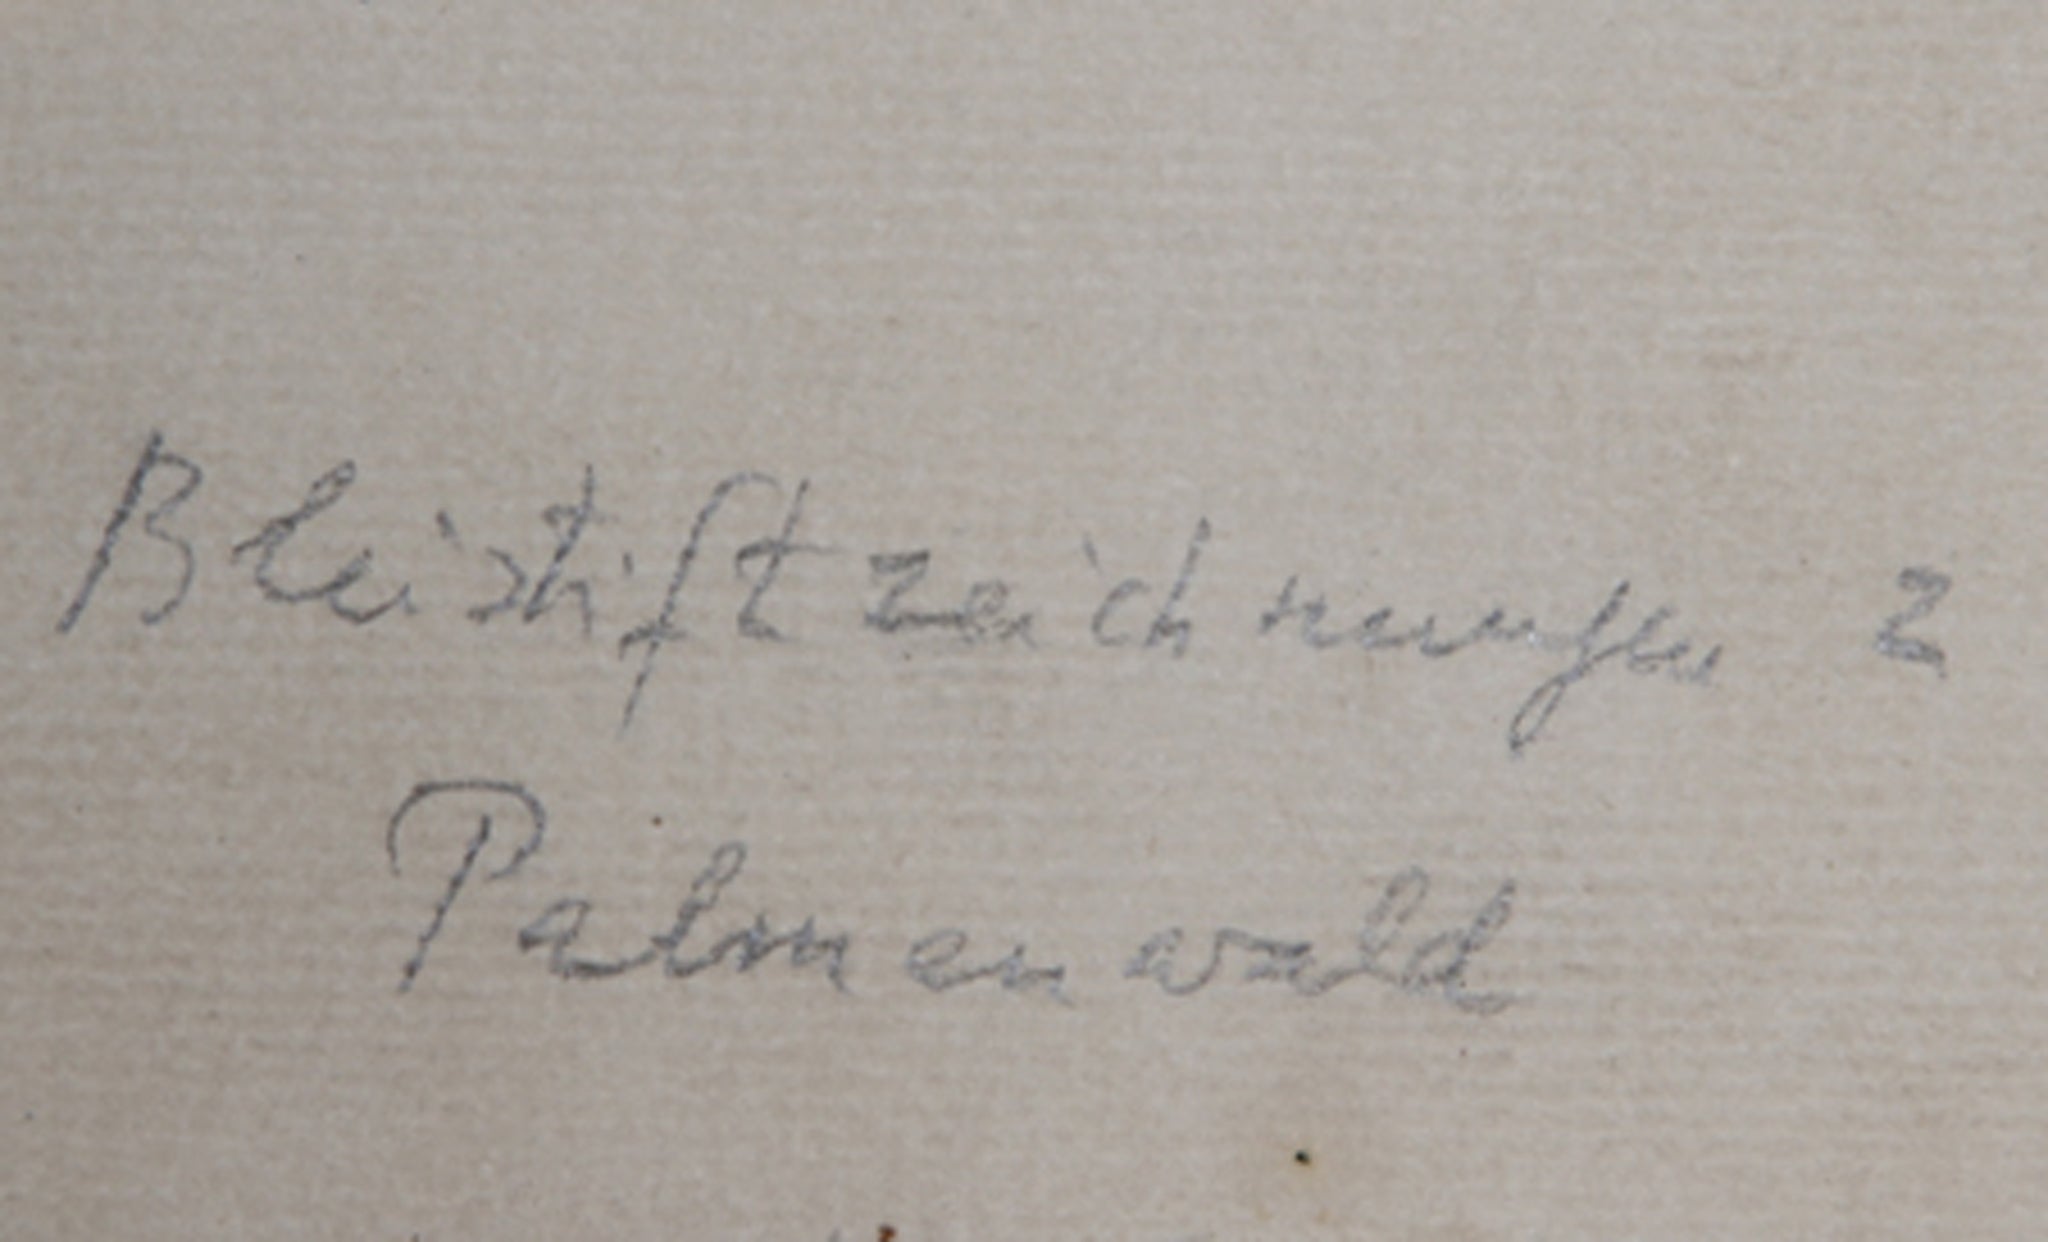 Bleistiftzeichnungen 2
Palmenwald